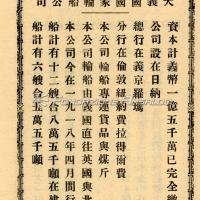 資本計義幣一億五千萬已完全繳
公司設在日納
總行在義京羅瑪
分行在倫敦紐約費拉得爾費
本公司輪船專運貨品與煤斤
本公司輪船由義國直往英國與北
本公司今在一九一八年四月間行
船計有十二艘合八萬五千噸在建
船計有六艘合五萬五千噸